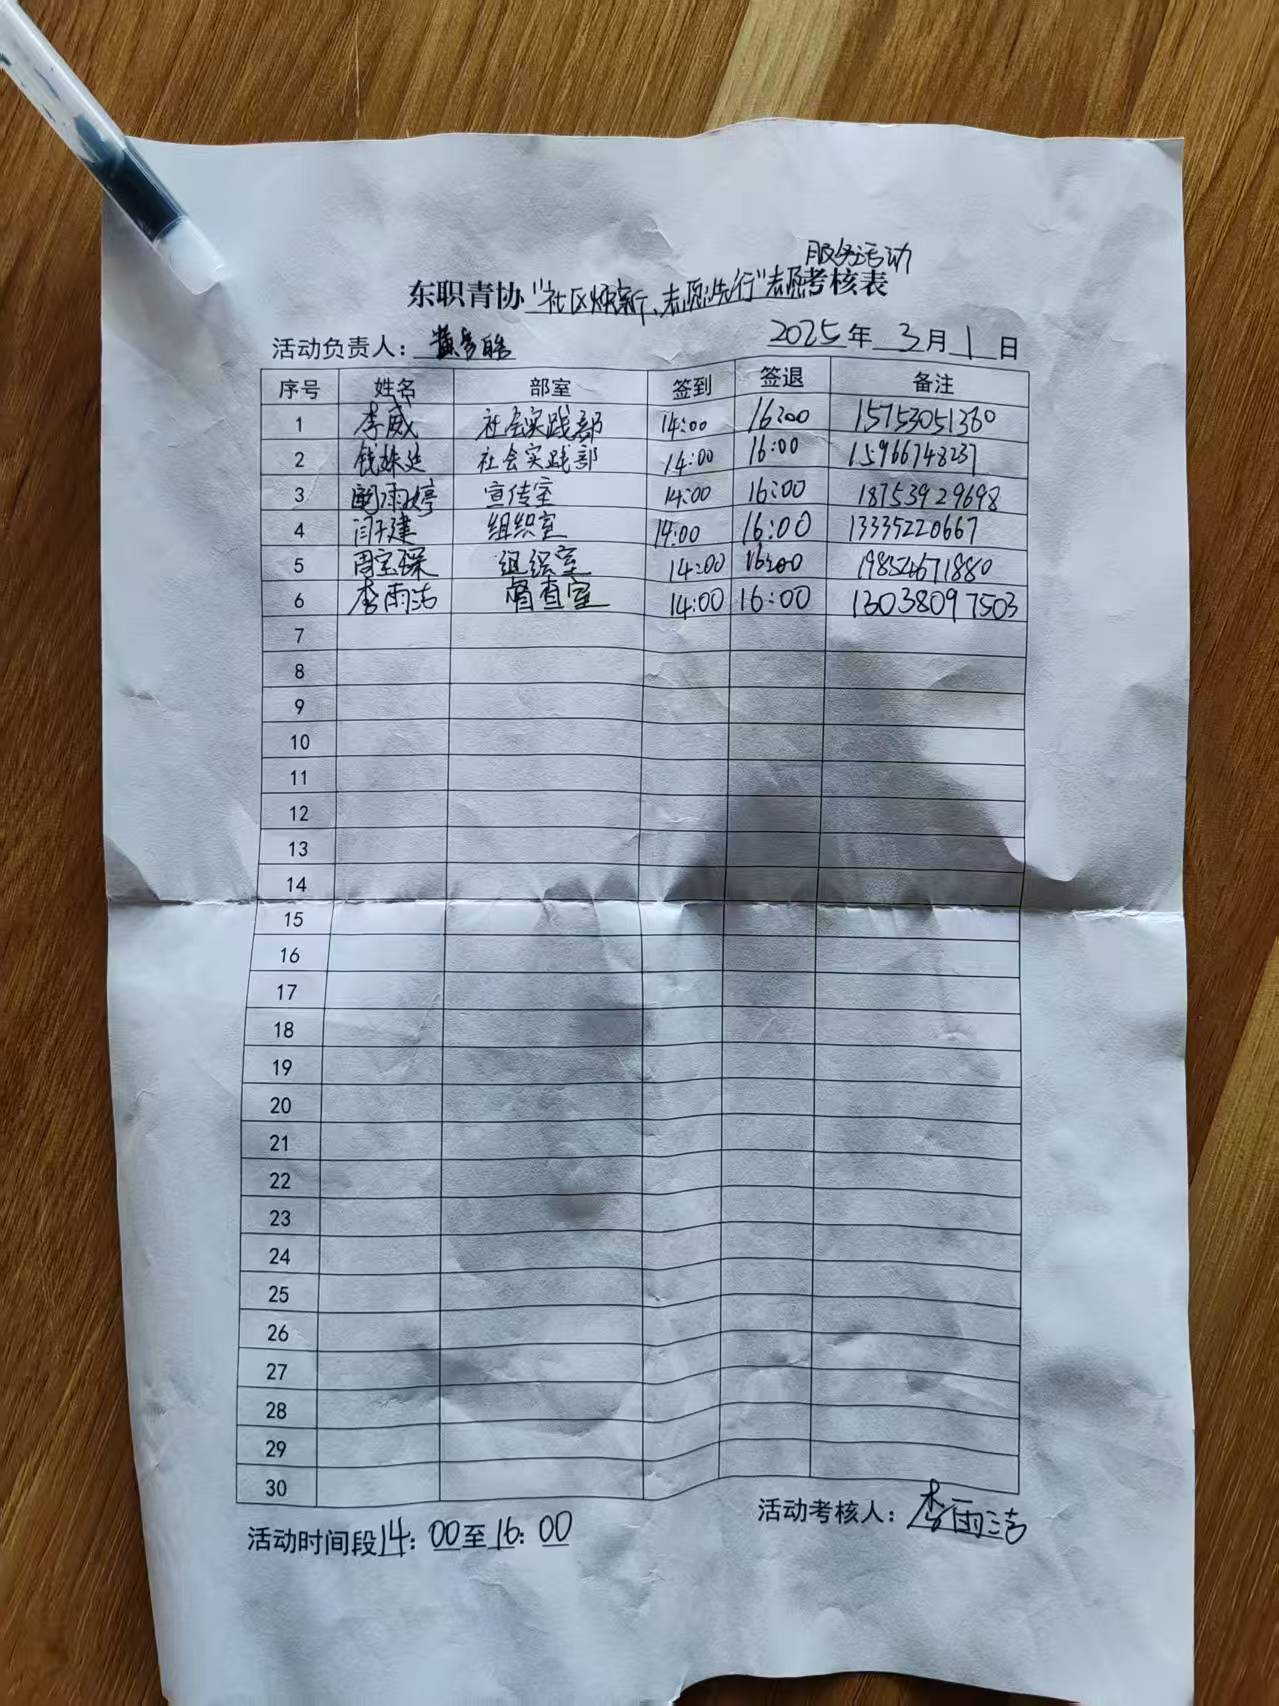 服务活动
东职青协"社区焕新、志愿先行"志愿考核表
活动负责人：
2025年 3月 1日
序号 姓名 部室 签到 签退 备注
1 李威 社会实践部 14:00 16:00 15753051360
2 社会实践部 14:00 16:00 15966748237
3 雨婷 宣传室 14:00 16:00 18753929698
4 闫子建 组织室 14:00 16:00 13335220667
5 周宝琛 组织室 14:00 16:00 19854671880
6 李雨洁 督查室 14:00 16:00 13038097503
7
8
9
10
11
12
13
14
15
16
17
18
19
20
21
22
23
24
25
26
27
28
29
30
活动时间段14：00至16：00
活动考核人：李雨洁